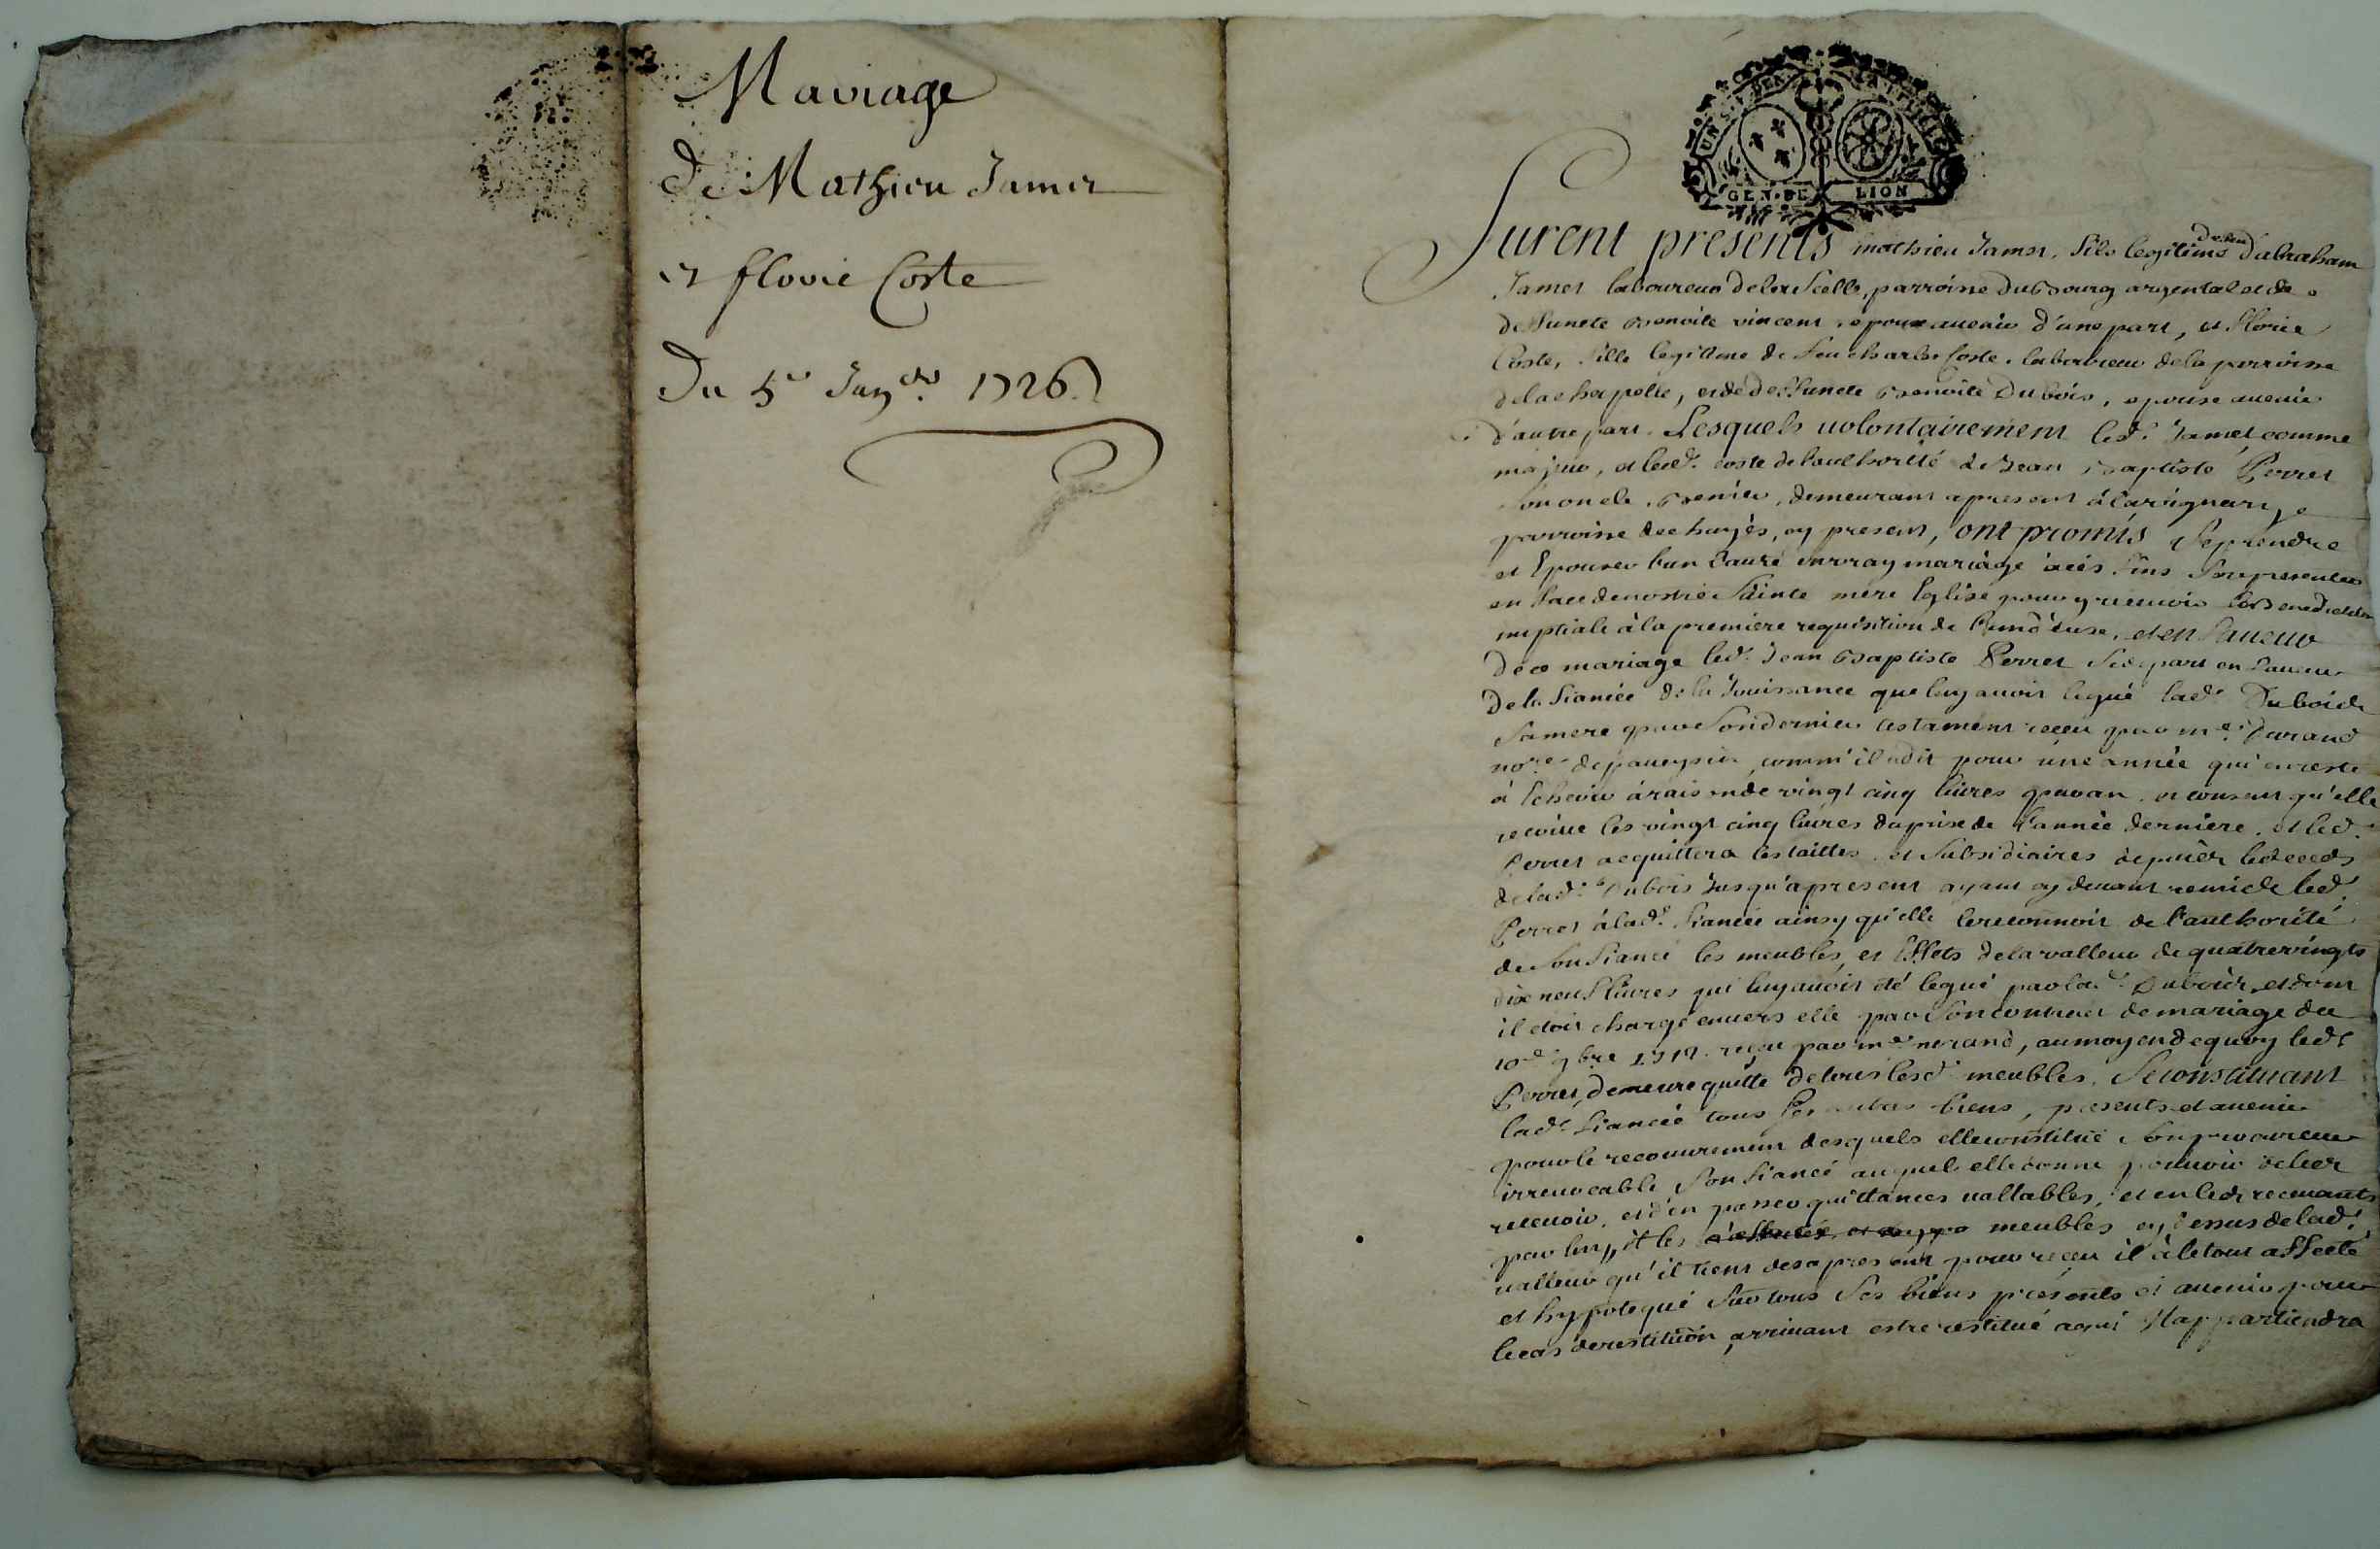 Mariage
De Mathieu Jamet
et florie Coste
Du 5e Janer 1726
UN SOL DEN. LA FEUILLE
GEN. DE LION
Furent presents mathieu Jamet, fils legitime de feu d'abraham
Jamet laboureur de la scelle, parroisse du bourg argental et de
deffuncte benoite vincent epoux avenir d'une part, et florie
Coste, fille legitime de feu charles Coste, laboureur de la parroisse
de la chapelle, et de deffuncte benoite Dubois, epouse avenir
d'autre part. Lesquels volontairement led. Jamet comme
majeur, et lad. coste de l'authorité de Jean baptiste Perret
son oncle, demeurant apresent à
parroisse de, cy present, ont promis se prendre
et Epouser l'un l'autre en vray mariage à ces fins se presenter
en face de nostre sainte mere Eglise pour y recevoir la benediction
nuptiale à la premiere requisition de l'un d'eux, et en faveur
de ce mariage led. Jean baptiste Perret se depart en faveur
de la fiancée de la Jouissance que luy avoit legué lad. Dubois
sa mere par son dernier testament receu par me Durand
nore de, comm'il a dit pour une année qui en reste
à Echeoir à raison de vingt cinq livres par an, et consent qu'elle
recoive les vingt cinq livres du prix de l'année derniere, et led.
Perret acquittera les tailles et subsidiaires depuis le deceds
de lad. Dubois Jusqu'apresent ayant cy devant remis led.
Perret à lad. fiancée ainsy qu'elle le reconnoit de l'authorité
de son fiancé les meubles, et Effets de la valleur de quatre vingts
dix neuf livres qui luy avoit été legué par lad. Dubois, et dont
il etoit chargé envers elle par son contract de mariage du
10e 9bre receu par me, au moyen de quoy led.
Perret demeure quitte de tous lesd. meubles. Se constituant
lad. fiancée tous ses autres biens, presents et avenir
pour le recouvrement desquels elle constitue son procureur
irrevocable son fiancé auquel elle donne pouvoir de les
recevoir, et d'en passer quittances vallables, et en les recevants
par luy, et les meubles cy dessus de lad.
valleur qu'il tient des apresent pour receu il à le tout affecté
et hypotequé sur tous ses biens presents et avenir pour
le cas de restitution arrivant estre restitué a qui Il appartiendra